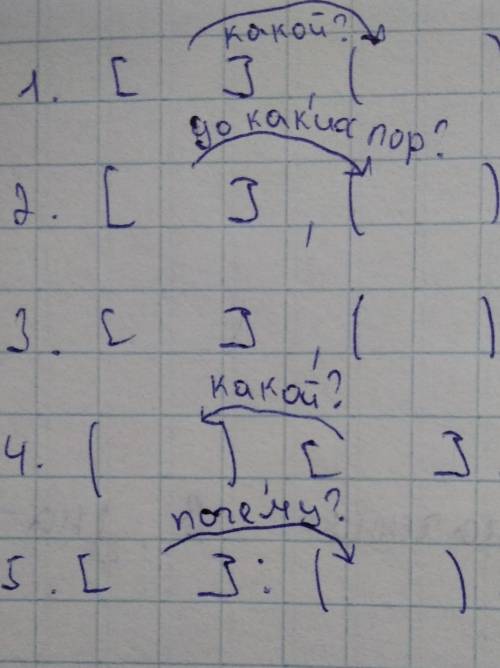 какой?
1. [ ], ( )
до каких пор?
2. [ ], ( )
3. [ ], ( )
какой?
4. ( ) [ ]
почему?
5. [ ]: ( )